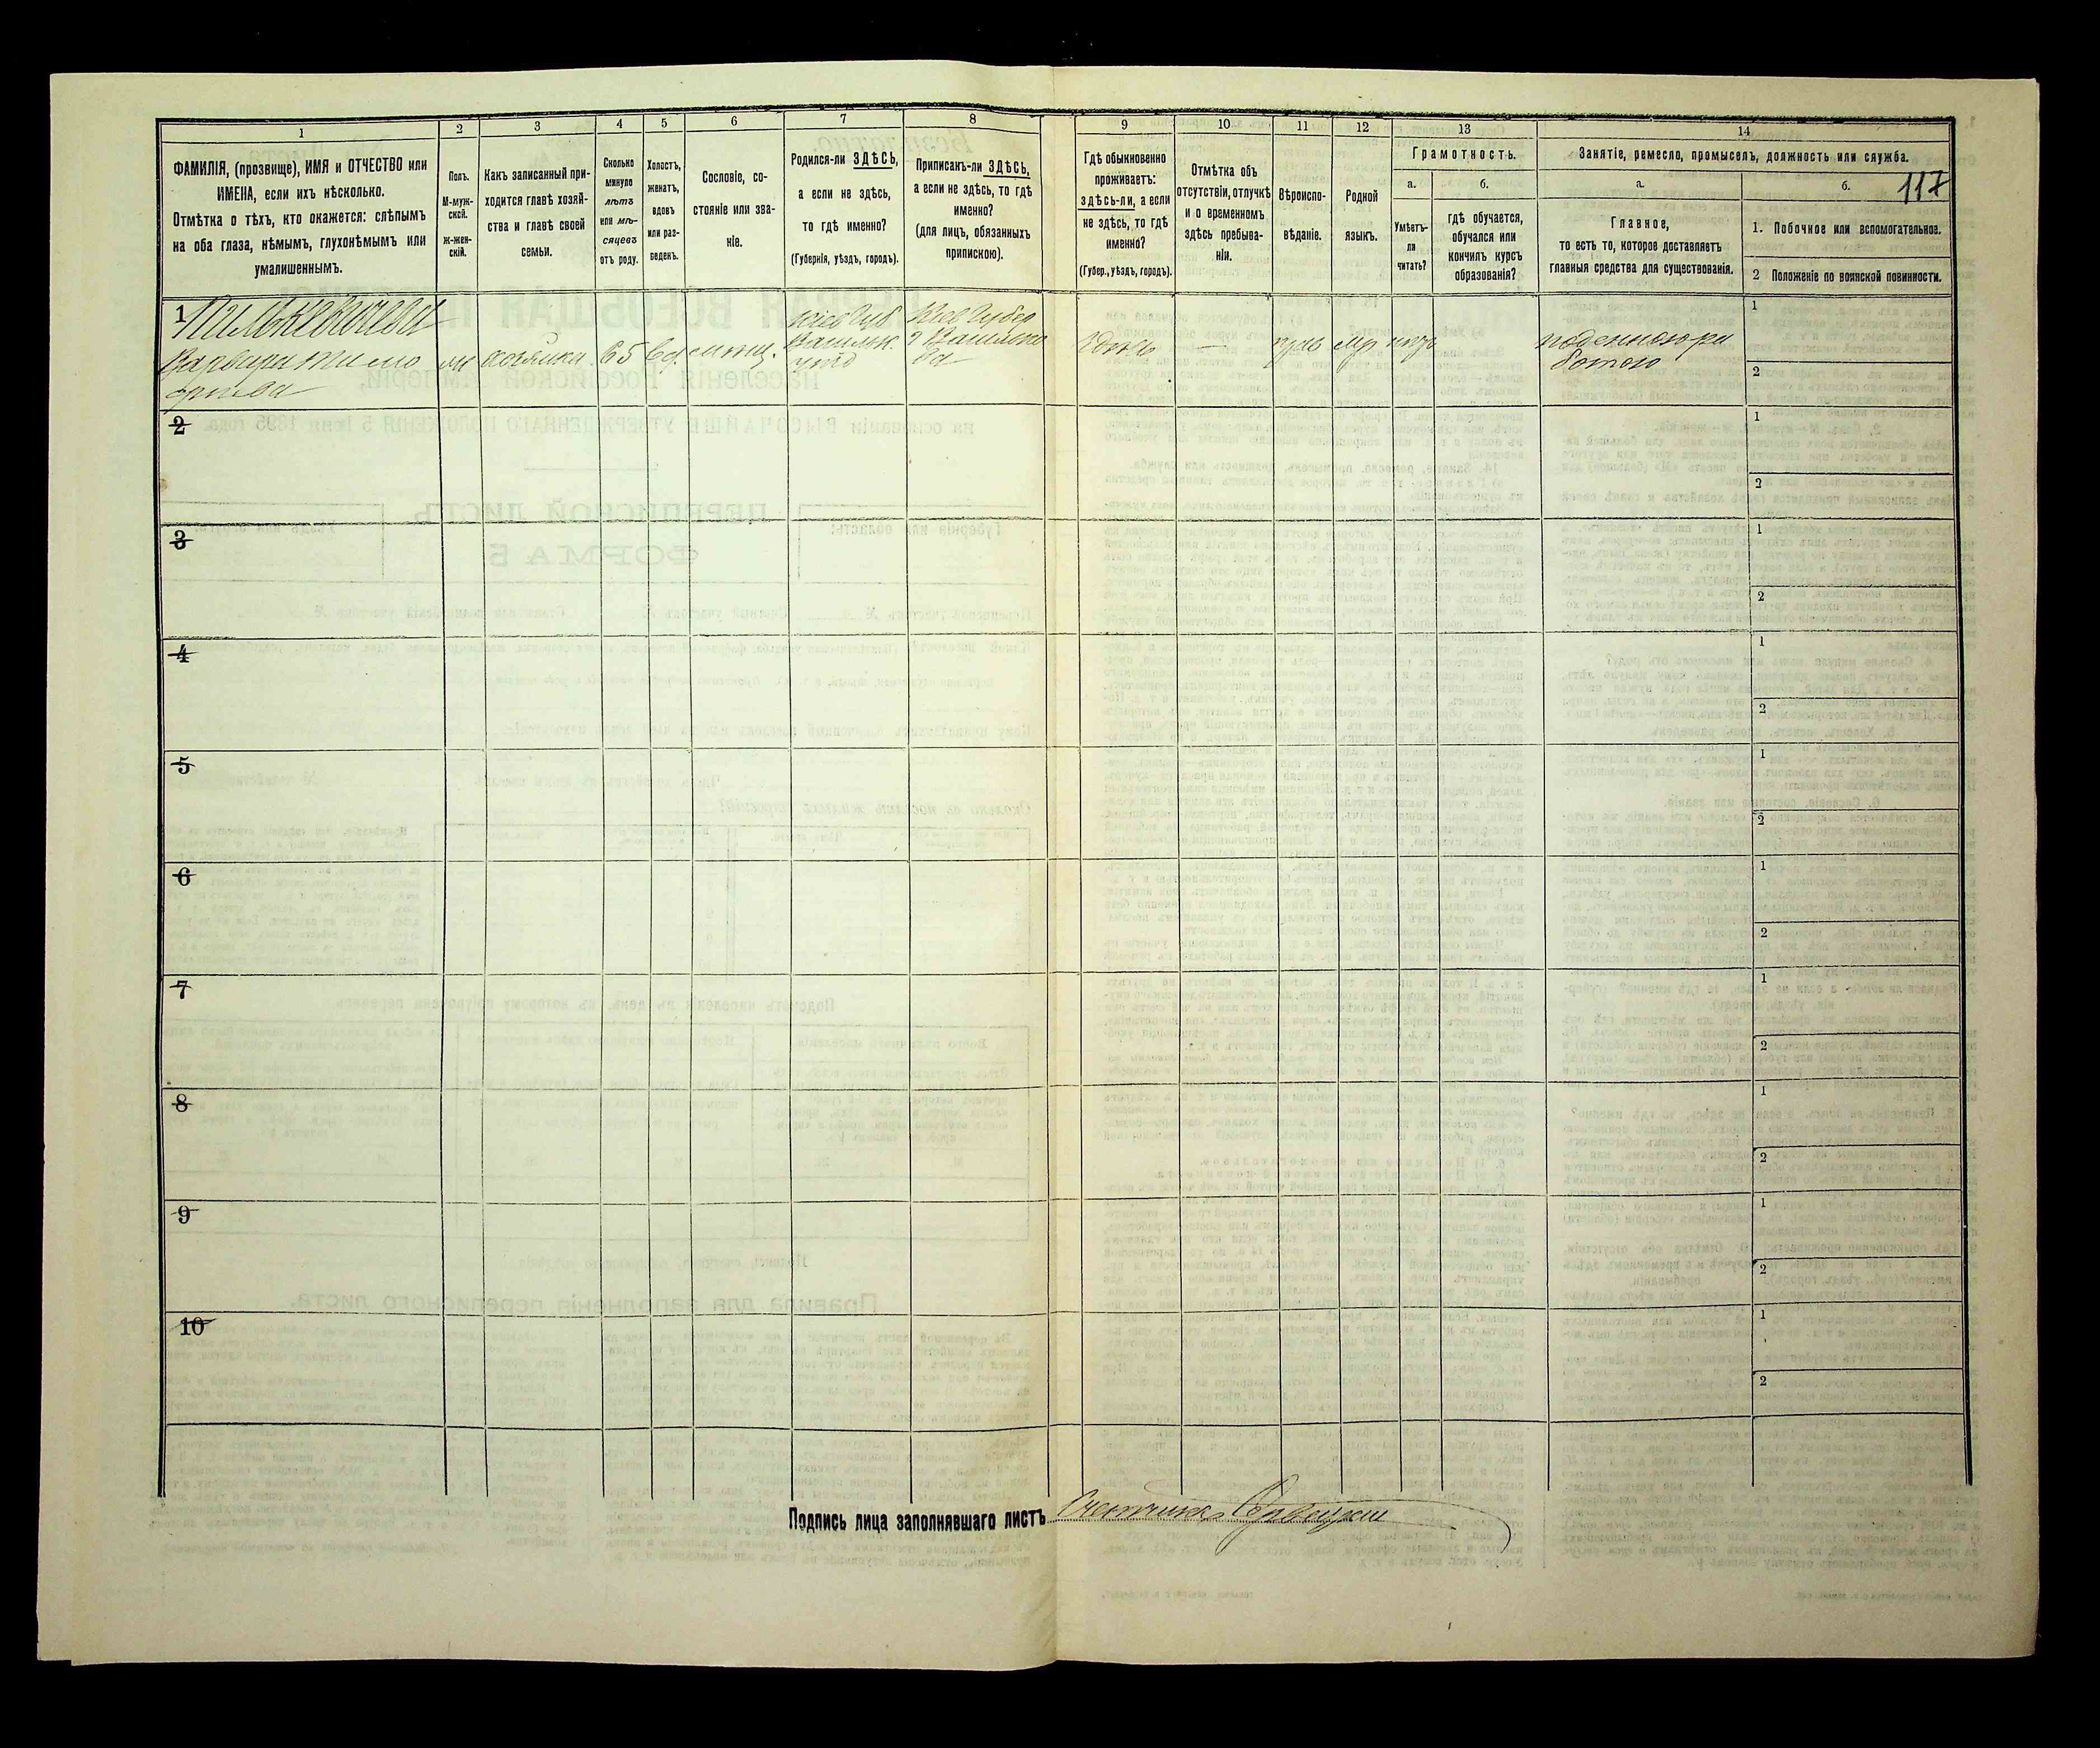 1
2
3
4
5
6
7
8
ФАМИЛІЯ, (прозвище), ИМЯ и ОТЧЕСТВО или
ИМЕНА, если ихъ нѣсколько.
Отмѣтка о тѣхъ, кто окажется: слѣпымъ
на оба глаза, нѣмымъ, глухонѣмымъ или
умалишеннымъ.
Полъ.
М-муж-
ской.
ж-жен-
скій.
Какъ записанный при-
ходится главѣ хозяй-
ства и главѣ своей
семьи.
Сколько
минуло
лѣтъ
или мѣ-
сяцевъ
отъ роду.
Холостъ,
женатъ,
вдовъ
или раз-
веденъ.
Сословіе, со-
стояніе или зва-
ніе.
Родился-ли ЗДѢСЬ,
а если не здѣсь,
то гдѣ именно?
(Губернія, уѣздъ, городъ).
Приписанъ-ли ЗДѢСЬ,
а если не здѣсь, то гдѣ
именно?
(для лицъ, обязанныхъ
припискою).
9
10
11
12
13
14
Гдѣ обыкновенно
проживаетъ:
здѣсь-ли, а если
не здѣсь, то гдѣ
именно?
(Губер., уѣздъ, городъ).
Отмѣтка объ
отсутствіи, отлучкѣ
и о временномъ
здѣсь пребыва-
ніи.
Вѣроиспо-
вѣданіе.
Родной
языкъ.
Грамотность.
а.
б.
Умѣетъ-
ли
читать?
гдѣ обучается,
обучался или
кончилъ курсъ
образованія?
Занятіе, ремесло, промыселъ, должность или служба.
а.
б.
117
Главное,
то есть то, которое доставляетъ
главныя средства для существованія.
1. Побочное или вспомогательное.
2 Положеніе по воинской повинности.
1
Варвара
хозяйка
65
вд
Кіев Губ
Кіев Губер
здѣсь
—
поденною ра
ботою
1
2
2
1
2
3
1
2
4
1
2
5
1
2
6
1
2
7
1
2
8
1
2
9
1
2
10
1
2
Подпись лица заполнявшаго листъ Счетчикъ